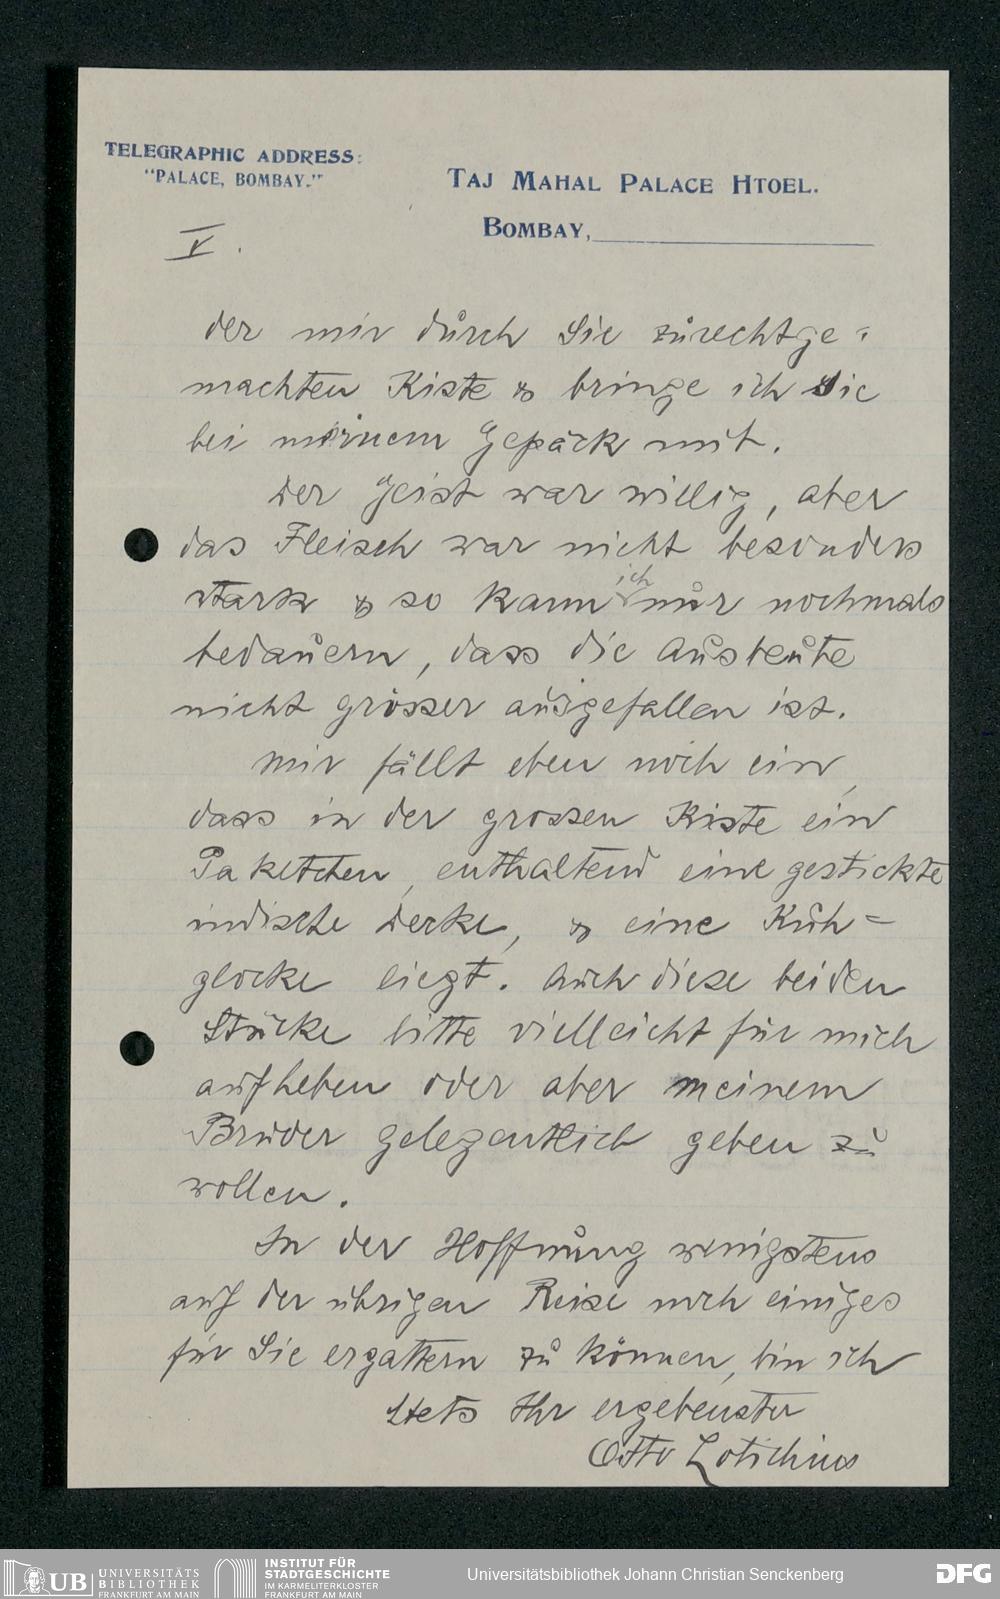 TELEGRAPHIC ADDRESS:
"PALACE, BOMBAY."
TAJ MAHAL PALACE HTOEL.
BOMBAY,
V.
der mir durch Sie zurechtge=
machten Kiste & bringe ich sie
bei meinem Gepäck mit.
Der Geist war willig, aber
das Fleisch war nicht besonders
stark & so kann ich nur nochmals
bedauern, dass die Ausbeute
nicht grösser ausgefallen ist.
Mir fällt eben noch ein,
dass in der grossen Kiste ein
Paketchen, enthaltend eine gestickte
indische Decke, & eine Kuh=
glocke liegt. Auch diese beiden
Stücke bitte vielleicht für mich
aufheben oder aber meinem
Bruder gelegentlich geben zu
wollen.
In der Hoffnung wenigstens
auf der übrigen Reise noch einiges
für Sie ergattern zu können, bin ich
stets Ihr ergebenster
Otto Lotichius
UB UNIVERSITÄTS
BIBLIOTHEK
FRANKFURT AM MAIN
INSTITUT FÜR
STADTGESCHICHTE
IM KARMELITERKLOSTER
FRANKFURT AM MAIN
Universitätsbibliothek Johann Christian Senckenberg
DFG